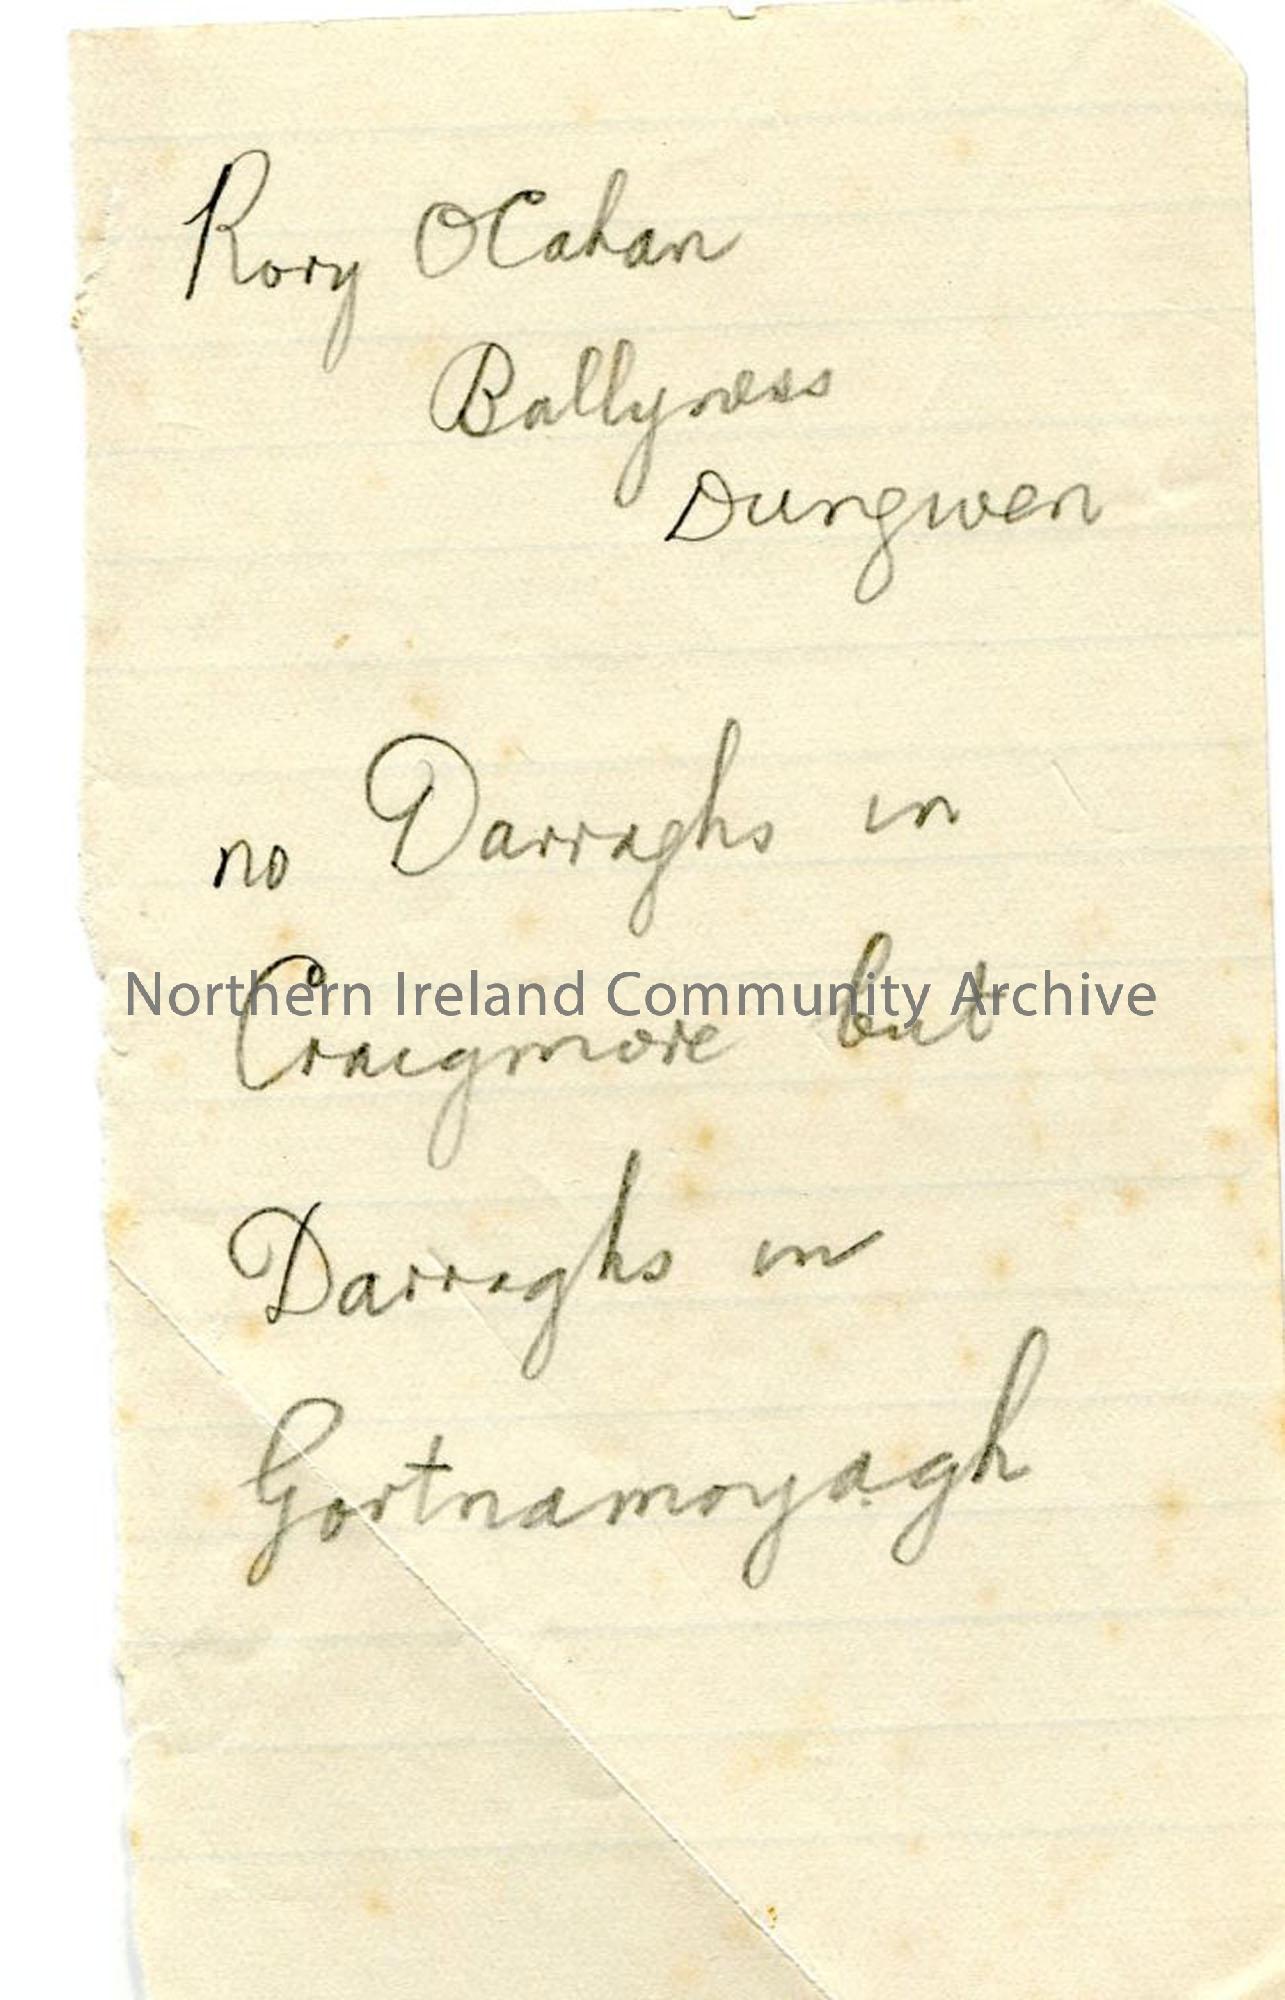 Rory OCahan
Ballyness
Dungwen
no Darraghs in
Northern Ireland Community Archive
Craigmore but
Darraghs in
Gortnamoyagh